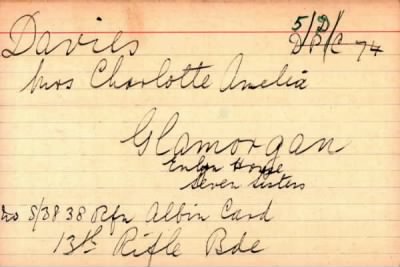 Davies
5/D/
D/2/C 74
Mrs Charlotte Amelia
Glamorgan
House
Seven Sisters
no 5/3838 Rfn Albin Card
13th Rifle Bde